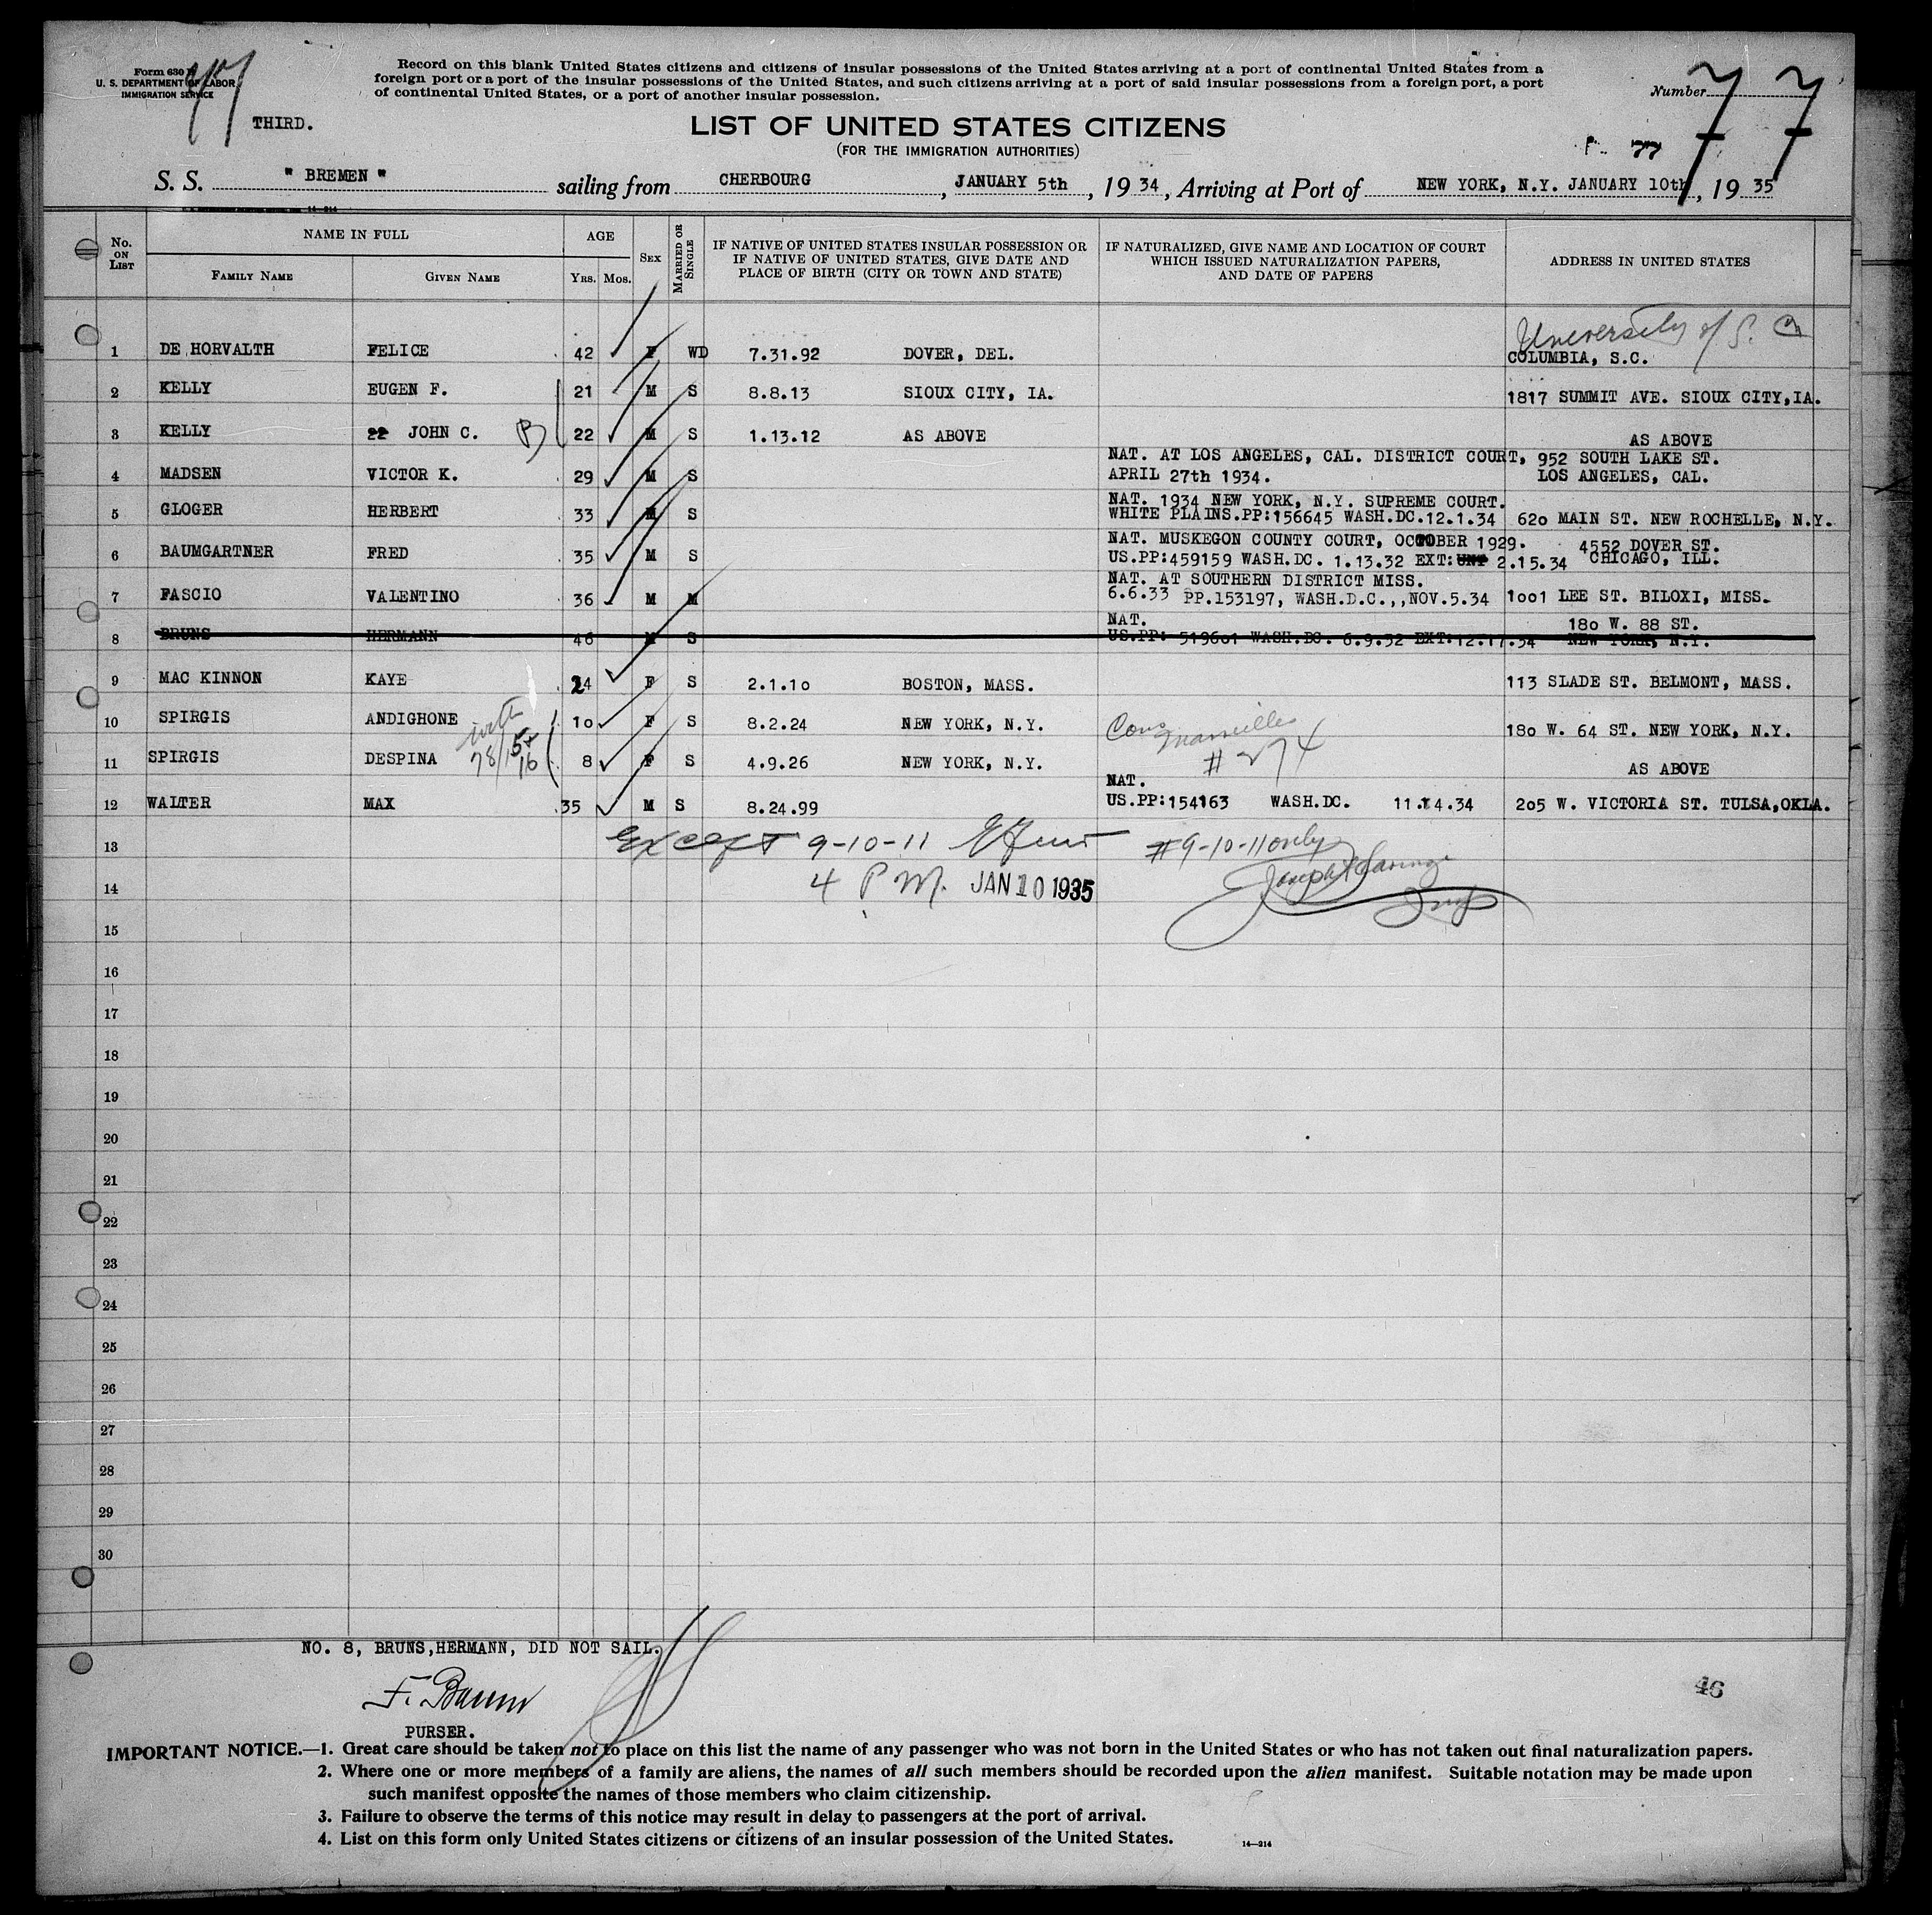 Form 630
U. S. DEPARTMENT OF LABOR
IMMIGRATION SERVICE
THIRD.
Record on this blank United States citizens and citizens of insular possessions of the United States arriving at a port of continental United States from a
foreign port or a port of the insular possessions of the United States, and such citizens arriving at a port of said insular possessions from a foreign port, a port
of continental United States, or a port of another insular possession.
Number 77
LIST OF UNITED STATES CITIZENS
(FOR THE IMMIGRATION AUTHORITIES)
P. 77
S. S. " BREMEN " sailing from CHERBOURG, JANUARY 5th, 1934, Arriving at Port of NEW YORK, N.Y. JANUARY 10th, 1935
No. ON LIST
NAME IN FULL
FAMILY NAME GIVEN NAME
AGE
YRS. MOS.
SEX
MARRIED OR SINGLE
IF NATIVE OF UNITED STATES INSULAR POSSESSION OR
IF NATIVE OF UNITED STATES, GIVE DATE AND
PLACE OF BIRTH (CITY OR TOWN AND STATE)
IF NATURALIZED, GIVE NAME AND LOCATION OF COURT
WHICH ISSUED NATURALIZATION PAPERS,
AND DATE OF PAPERS
ADDRESS IN UNITED STATES
University of S. Ca
1 DE HORVALTH FELICE 42 F WD 7.31.92 DOVER, DEL. COLUMBIA, S.C.
2 KELLY EUGEN F. 21 M S 8.8.13 SIOUX CITY, IA. 1817 SUMMIT AVE. SIOUX CITY,IA.
3 KELLY 22 JOHN C. B 22 M S 1.13.12 AS ABOVE AS ABOVE
NAT. AT LOS ANGELES, CAL. DISTRICT COURT, 952 SOUTH LAKE ST.
4 MADSEN VICTOR K. 29 M S APRIL 27th 1934. LOS ANGELES, CAL.
NAT. 1934 NEW YORK, N.Y. SUPREME COURT.
5 GLOGER HERBERT 33 M S WHITE PLAINS.PP:156645 WASH.DC.12.1.34 620 MAIN ST. NEW ROCHELLE, N.Y.
NAT. MUSKEGON COUNTY COURT, OCTOBER 1929. 4552 DOVER ST.
6 BAUMGARTNER FRED 35 M S US.PP:459159 WASH.DC. 1.13.32 EXT: 2.15.34 CHICAGO, ILL.
NAT. AT SOUTHERN DISTRICT MISS.
7 FASCIO VALENTINO 36 M M 6.6.33 PP.153197, WASH.D.C.,,NOV.5.34 1001 LEE ST. BILOXI, MISS.
NAT. 180 W. 88 ST.
8 BRUNS HERMANN 46 M S US.PP: 519601 WASH.DC. 6.9.32 EXT:12.17.34 NEW YORK, N.Y.
9 MAC KINNON KAYE 24 F S 2.1.10 BOSTON, MASS. 113 SLADE ST. BELMONT, MASS.
10 SPIRGIS ANDIGHONE 10 F S 8.2.24 NEW YORK, N.Y. 180 W. 64 ST. NEW YORK, N.Y.
with
78/15+16
Cons Marseilles
# 274
11 SPIRGIS DESPINA 8 F S 4.9.26 NEW YORK, N.Y. AS ABOVE
NAT.
12 WALTER MAX 35 M S 8.24.99 US.PP:154163 WASH.DC. 11.14.34 205 W. VICTORIA ST. TULSA,OKLA.
13
Except 9-10-11
#9-10-11 only
14
4 P M. JAN 10 1935
Insp
15
16
17
18
19
20
21
22
23
24
25
26
27
28
29
30
NO. 8, BRUNS,HERMANN, DID NOT SAIL.
PURSER.
46
IMPORTANT NOTICE.—1. Great care should be taken not to place on this list the name of any passenger who was not born in the United States or who has not taken out final naturalization papers.
2. Where one or more members of a family are aliens, the names of all such members should be recorded upon the alien manifest. Suitable notation may be made upon
such manifest opposite the names of those members who claim citizenship.
3. Failure to observe the terms of this notice may result in delay to passengers at the port of arrival.
4. List on this form only United States citizens or citizens of an insular possession of the United States.
14—214